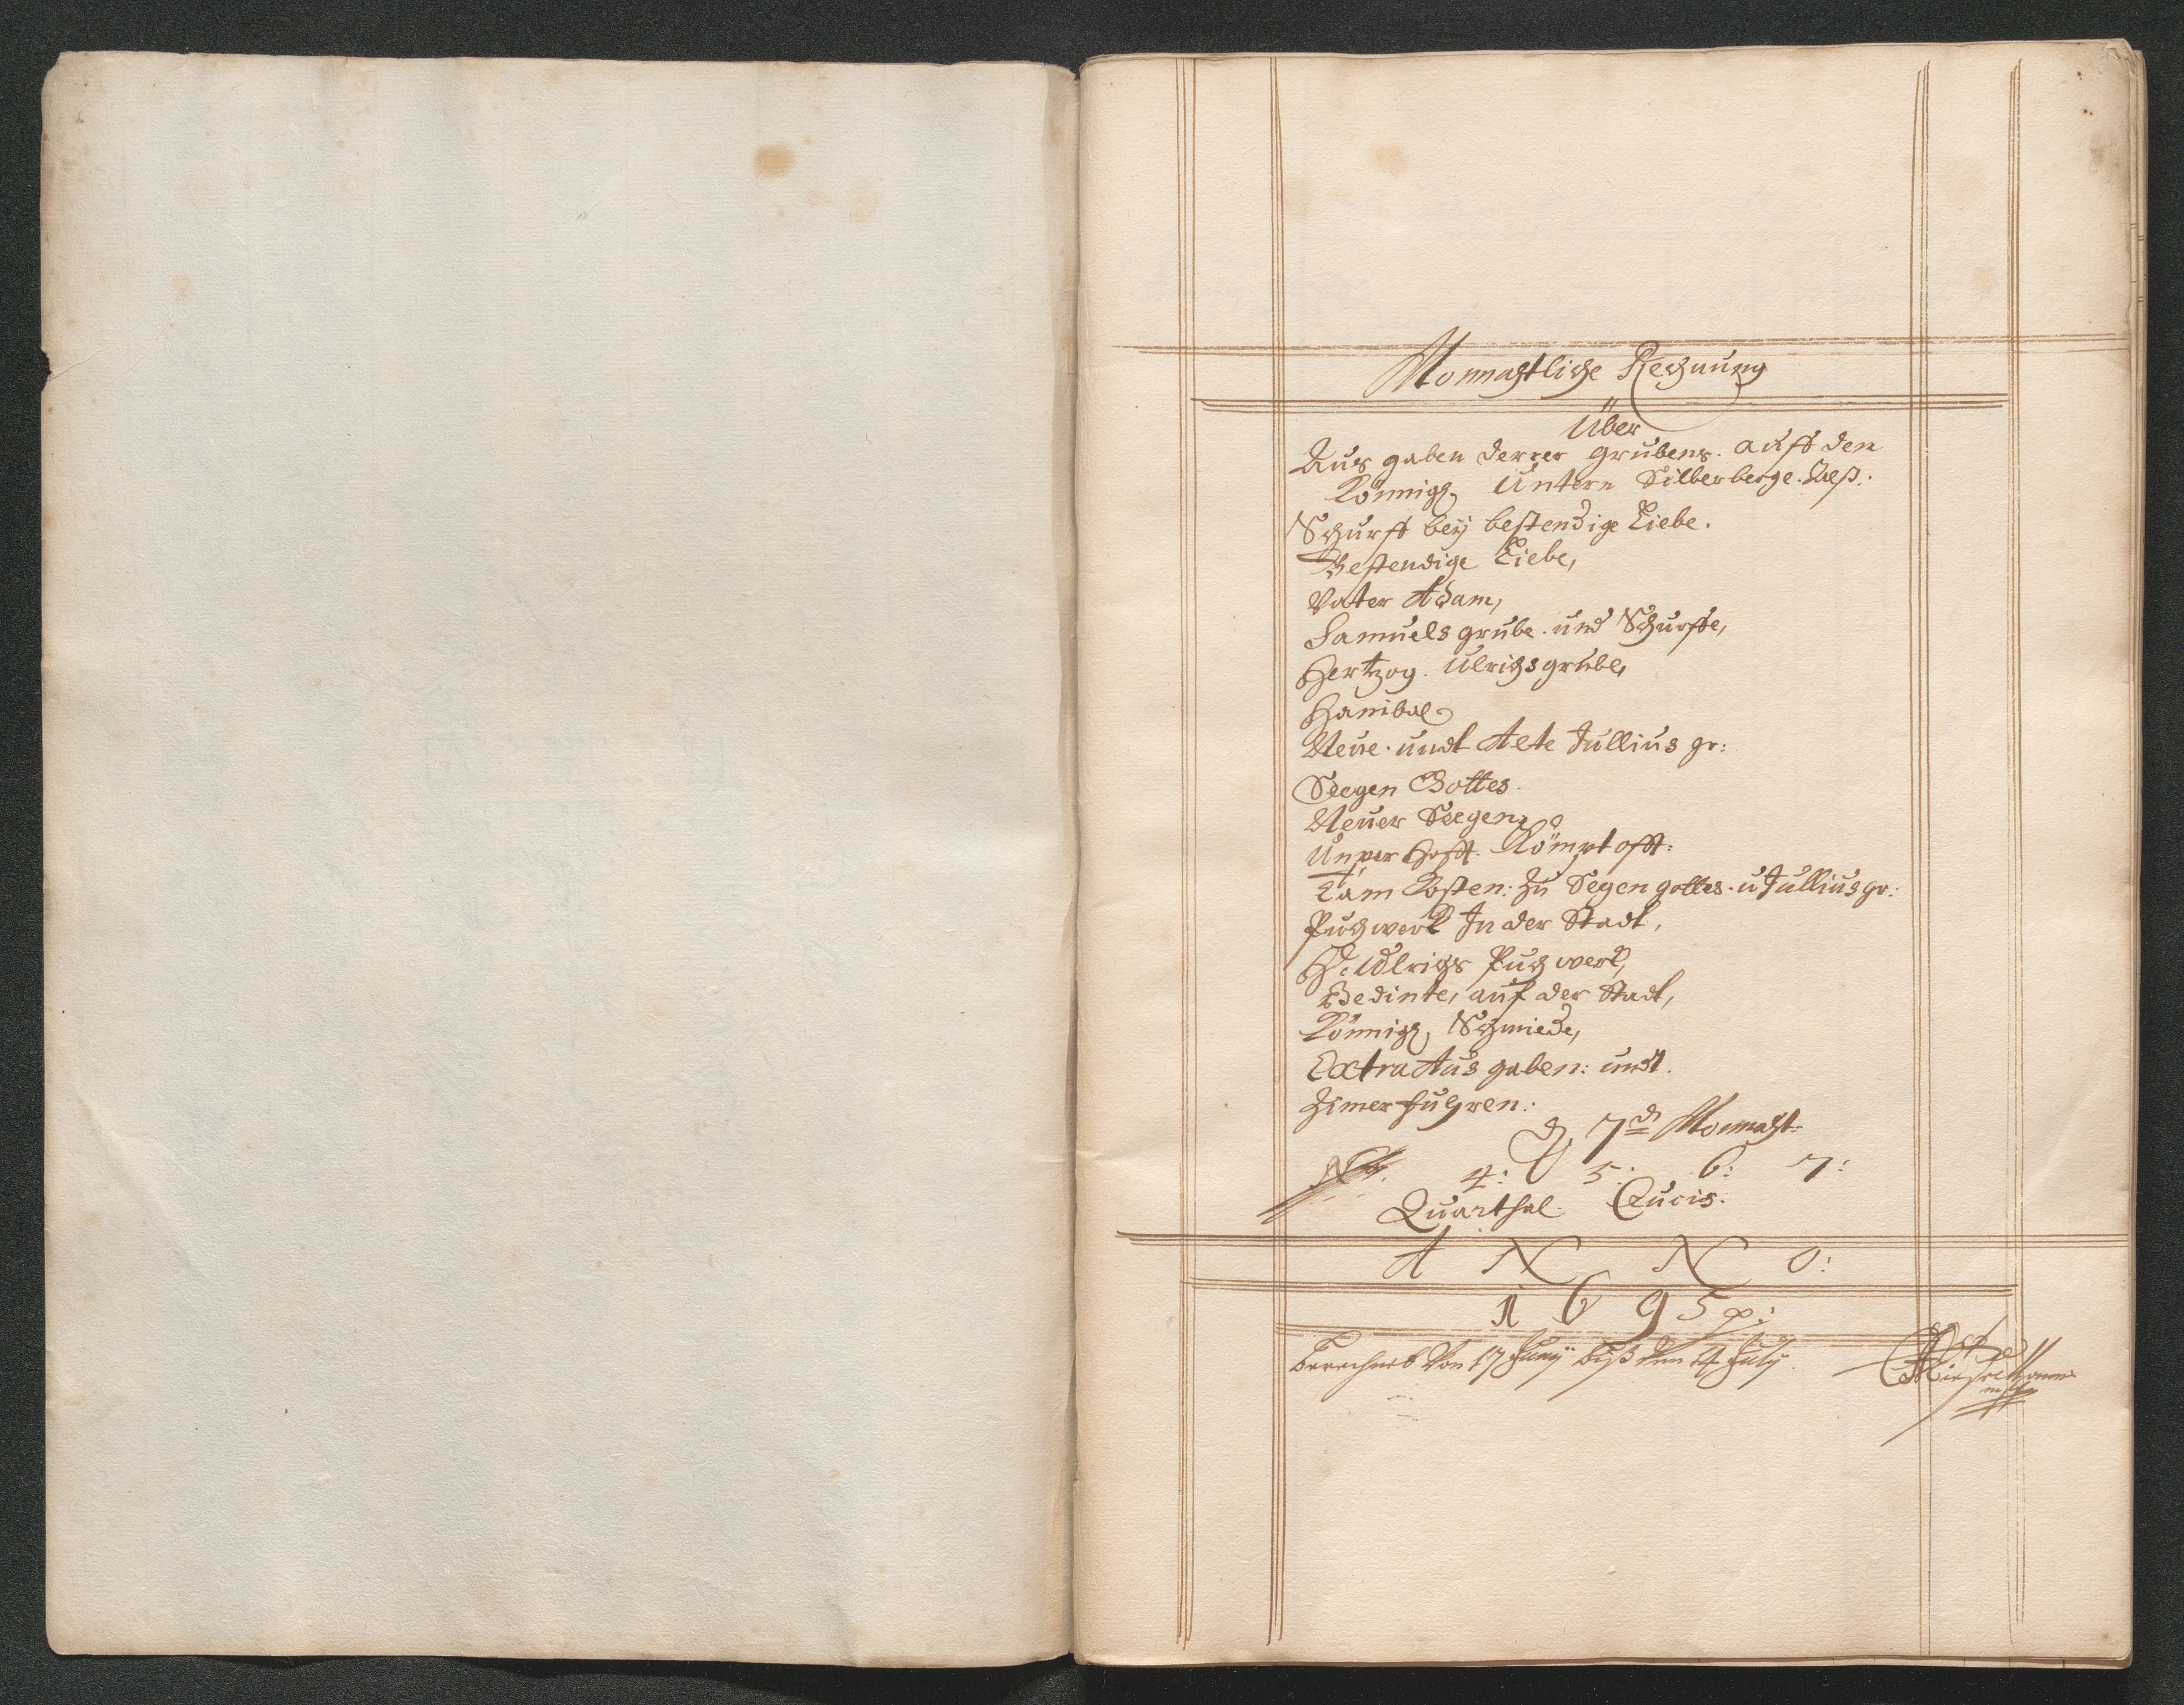 Monnahtliche Rechnung
Über
Aus gaben derrer Grubens. auff den
Könnigs Untern Silberberge. Als.
Schurff beÿ bestendige Liebe.
Bestendige Liebe,
Vater Adam,
Samuels grube. und Schurffe,
Hertzog. Ulrichs grube,
Hanibal
Neue. undt Alte Jullius gr:
Seegen Gottes.
Neuer Seegen,
Unver hofft. Kömpt offt:
Kosten: Zu Segen gottes. u Jullius gr:
Puchwerk In der Stadt,
H. Ulrichs Puchwerk,
Bedinte, auf der Stadt,
Könnigs Schmiede,
Extra Aus gaben: undt.
Zimer fuhren.
d. 7d Monnaht:
No. 4: 5: 6: 7:
Quarthal. Crucis.
A N N O:
1695
Berechnet Von 17 Junÿ biß den 4 Julÿ